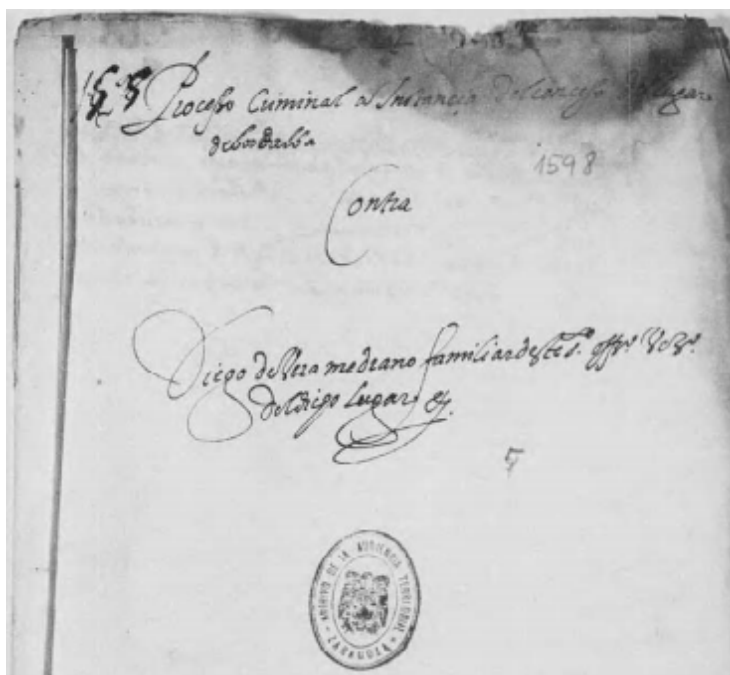 Processo Criminal a Instancia del concejo del lugar
de bordalba
1598
Contra
Diego de Vera medrano familiar deste s.^to off.^o Vez.^o
del dicho lugar &.
ARCHIVO DE LA AUDIENCIA TERRITORIAL
ZARAGOZA